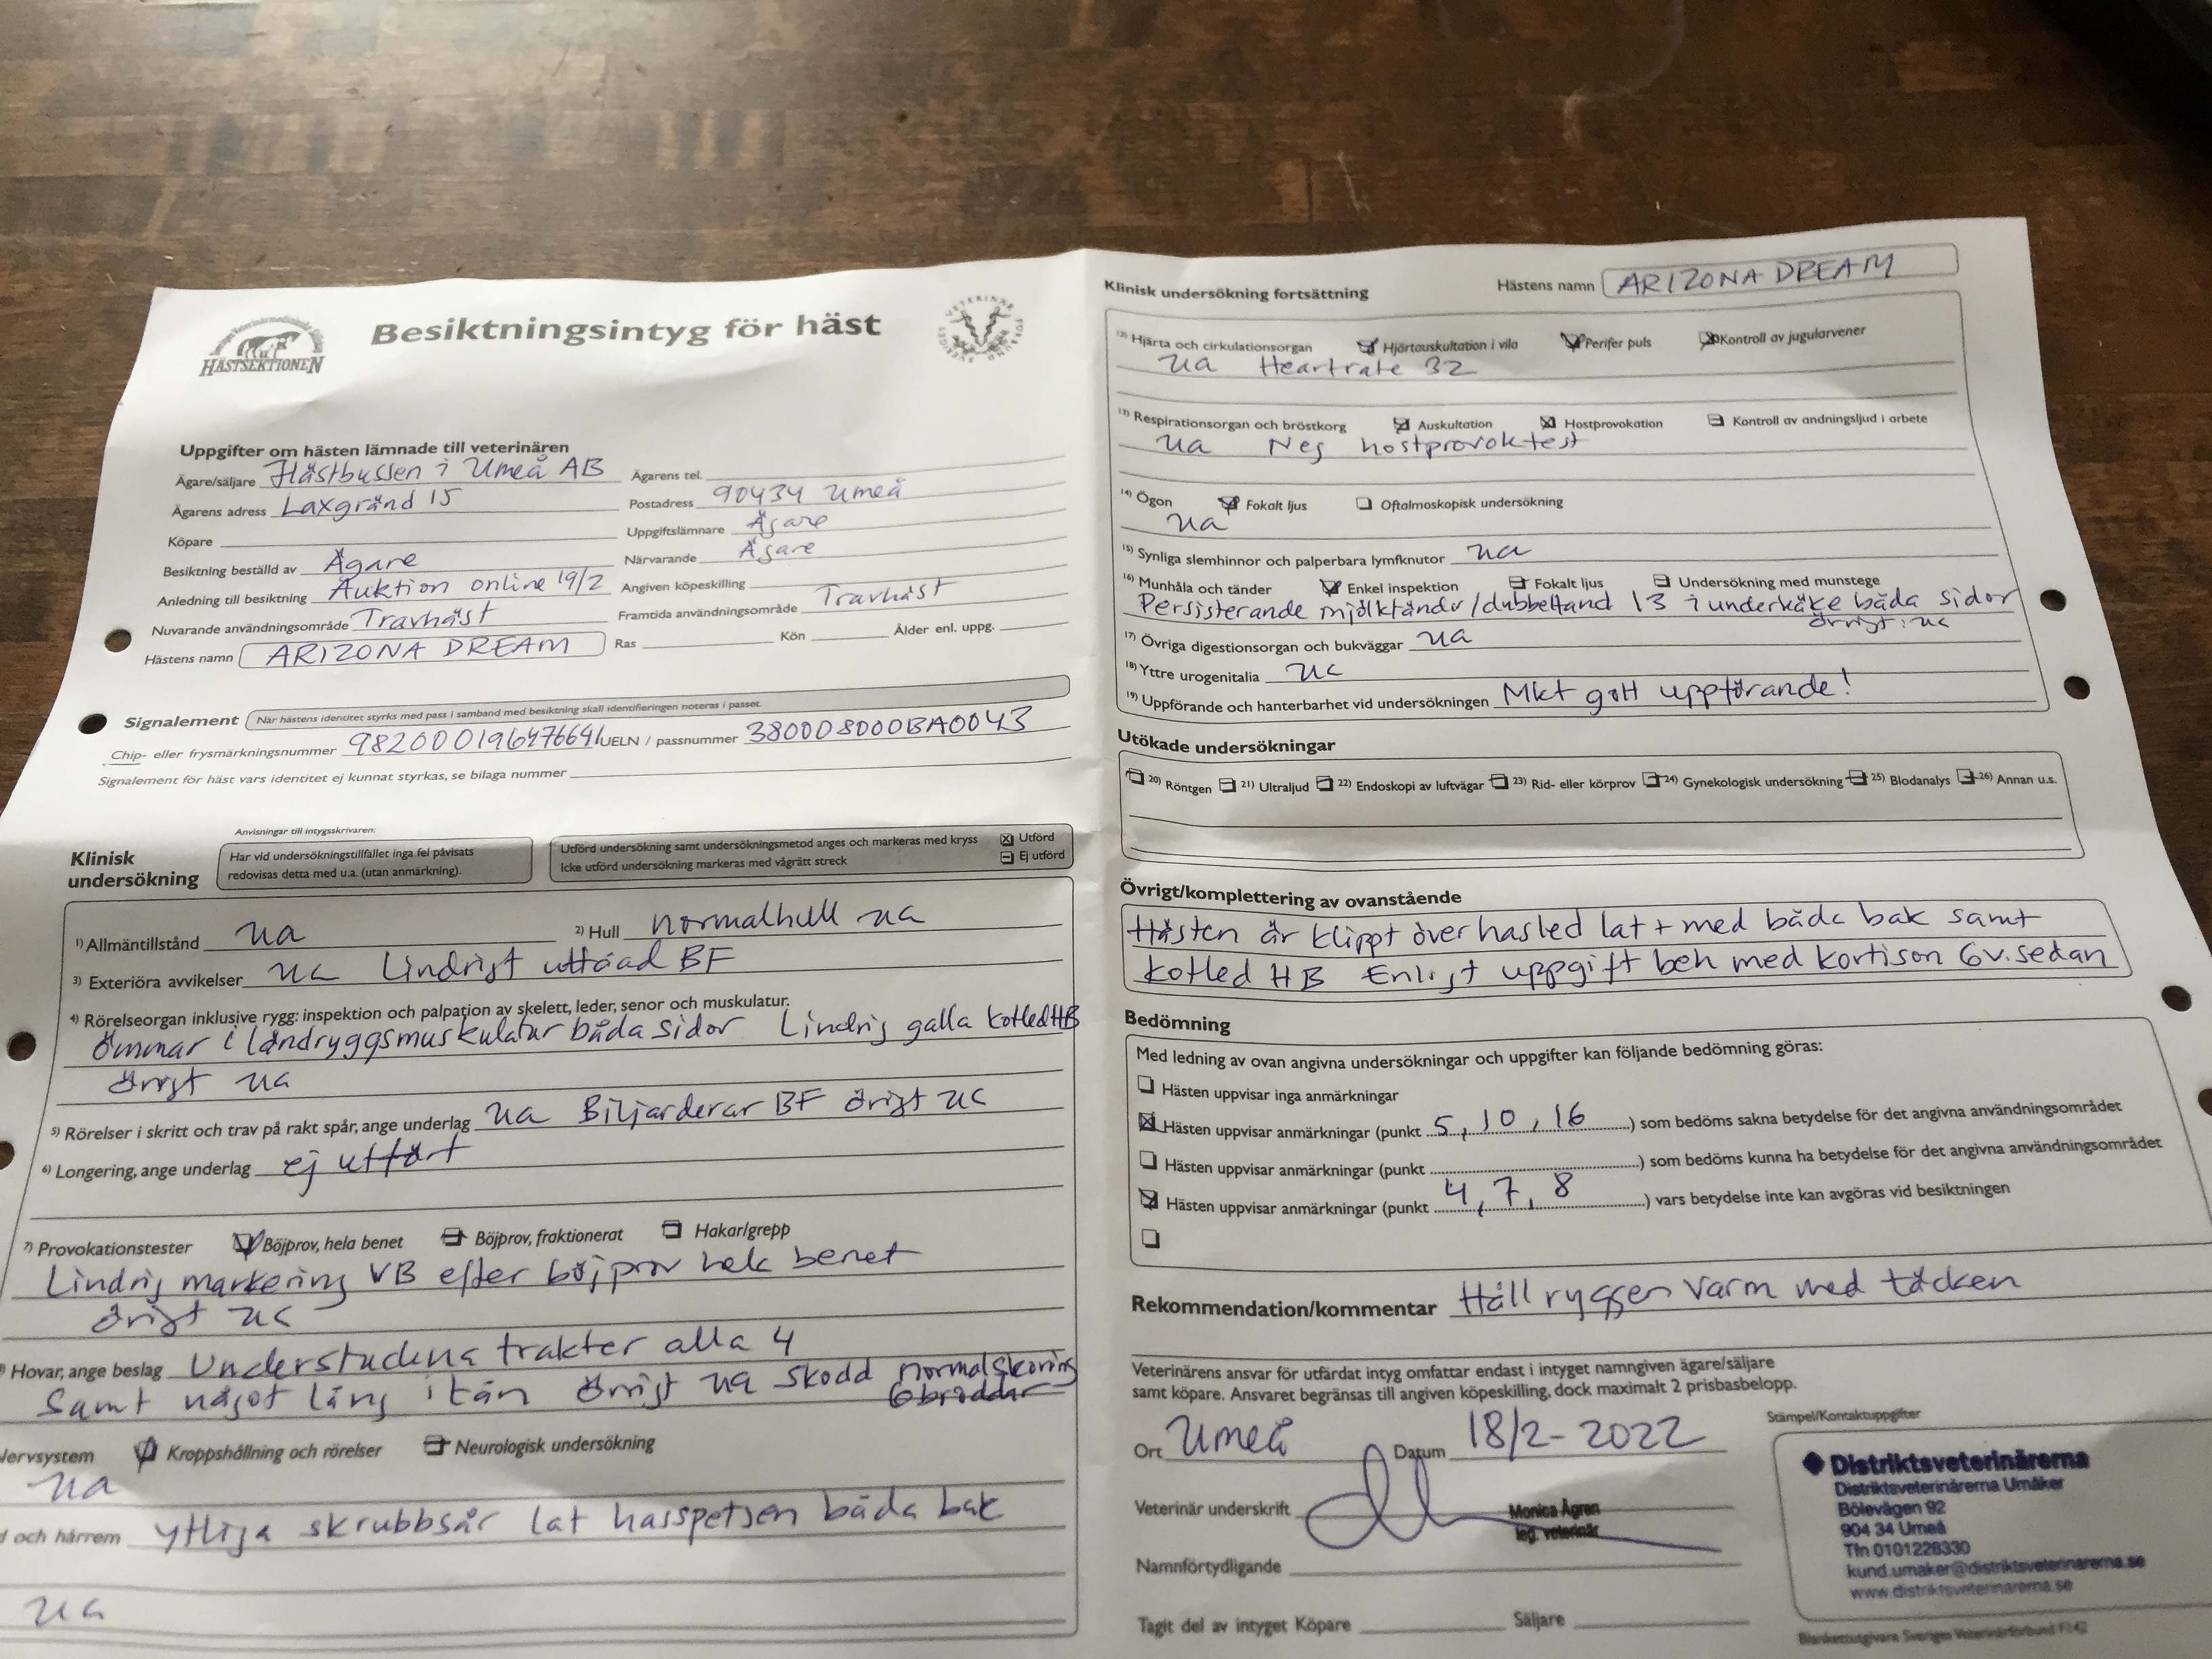 HÄSTSEKTIONEN
Besiktningsintyg för häst
Uppgifter om hästen lämnade till veterinären
Ägare/säljare Hästbussen i Umeå AB Ägarens tel.
Ägarens adress Laxgränd 15 Postadress 90434 Umeå
Köpare Uppgiftslämnare Ägare
Besiktning beställd av Ägare Närvarande Ägare
Anledning till besiktning Auktion online 19/2 Angiven köpeskilling
Nuvarande användningsområde Travhäst Framtida användningsområde Travhäst
Hästens namn ARIZONA DREAM Ras Kön Ålder enl. uppg.
Signalement När hästens identitet styrks med pass i samband med besiktning skall identifieringen noteras i passet.
Chip- eller frysmärkningsnummer 982000196476641 UELN / passnummer 380008000BA0043
Signalement för häst vars identitet ej kunnat styrkas, se bilaga nummer
Anvisningar till intygsskrivaren:
Klinisk undersökning
Har vid undersökningstillfället inga fel påvisats
redovisas detta med u.a. (utan anmärkning).
Utförd undersökning samt undersökningsmetod anges och markeras med kryss Utförd
Icke utförd undersökning markeras med vågrätt streck Ej utförd
1) Allmäntillstånd ua 2) Hull normalhull ua
3) Exteriöra avvikelser ua Lindrigt uttåad BF
4) Rörelseorgan inklusive rygg: inspektion och palpation av skelett, leder, senor och muskulatur.
Ömmar i ländryggsmuskulatur båda sidor Lindrig galla kotled HB
övrigt ua
5) Rörelser i skritt och trav på rakt spår, ange underlag ua Biljarderar BF övrigt ua
6) Longering, ange underlag ej utfört
7) Provokationstester Böjprov, hela benet Böjprov, fraktionerat Hakar/grepp
Lindrig markering VB efter böjprov hela benet
övrigt ua
Hovar, ange beslag Understuckna trakter alla 4
Samt något lång i tån övrigt ua skodd normalskoning
6 broddar
Nervsystem Kroppshållning och rörelser Neurologisk undersökning
ua
och hårrem ytliga skrubbsår lat hasspetsen båda bak
ua
Klinisk undersökning fortsättning Hästens namn ARIZONA DREAM
12) Hjärta och cirkulationsorgan Hjärtauskultation i vila Perifer puls Kontroll av jugularvener
ua Heartrate 32
13) Respirationsorgan och bröstkorg Auskultation Hostprovokation Kontroll av andningsljud i arbete
ua Neg hostprovoktest
14) Ögon Fokalt ljus Oftalmoskopisk undersökning
ua
15) Synliga slemhinnor och palperbara lymfknutor ua
16) Munhåla och tänder Enkel inspektion Fokalt ljus Undersökning med munstege
Persisterande mjölktänder/dubbeltand 13 i underkäke båda sidor
övrigt: ua
17) Övriga digestionsorgan och bukväggar ua
18) Yttre urogenitalia ua
19) Uppförande och hanterbarhet vid undersökningen Mkt gott uppförande!
Utökade undersökningar
20) Röntgen 21) Ultraljud 22) Endoskopi av luftvägar 23) Rid- eller körprov 24) Gynekologisk undersökning 25) Blodanalys 26) Annan u.s.
Övrigt/komplettering av ovanstående
Hästen är klippt över hasled lat + med båda bak samt
kotled HB Enligt uppgift beh med kortison 6 v. sedan
Bedömning
Med ledning av ovan angivna undersökningar och uppgifter kan följande bedömning göras:
Hästen uppvisar inga anmärkningar
Hästen uppvisar anmärkningar (punkt 5, 10, 16) som bedöms sakna betydelse för det angivna användningsområdet
Hästen uppvisar anmärkningar (punkt ) som bedöms kunna ha betydelse för det angivna användningsområdet
Hästen uppvisar anmärkningar (punkt 4, 7, 8) vars betydelse inte kan avgöras vid besiktningen
Rekommendation/kommentar Håll ryggen varm med täcken
Veterinärens ansvar för utfärdat intyg omfattar endast i intyget namngiven ägare/säljare
samt köpare. Ansvaret begränsas till angiven köpeskilling, dock maximalt 2 prisbasbelopp.
Ort Umeå Datum 18/2-2022
Stämpel/Kontaktuppgifter
Veterinär underskrift
Monica Ågren
leg. veterinär
Namnförtydligande
Tagit del av intyget Köpare Säljare
Distriktsveterinärerna
Distriktsveterinärerna Umåker
Bölevägen 92
904 34 Umeå
Tfn 0101228330
kund.umaker@distriktsveterinarerna.se
www.distriktsveterinarerna.se
Blankettutgivare Sveriges Veterinärförbund F142